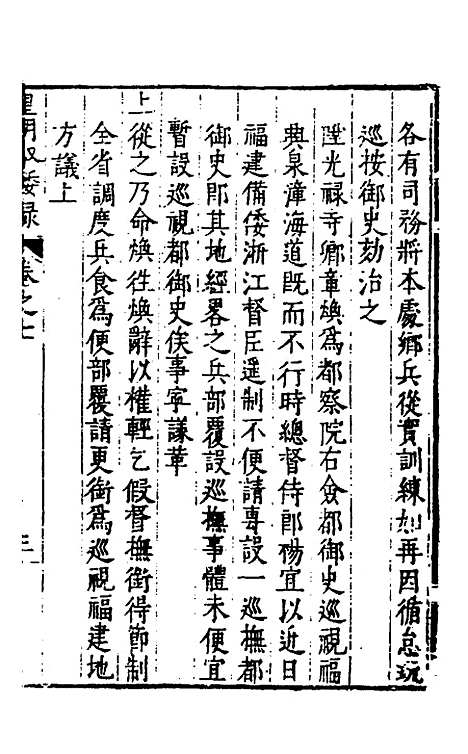 各有司務將本處鄉兵從實訓練如再因循怠玩
巡按御史劾治之
陞光禄寺卿章煥為都察院右僉都御史巡視福
興泉漳海道既而不行時總督侍郎楊宜以近日
福建備倭浙江督臣遥制不便請專設一巡撫都
御史即其地經畧之兵部覆設巡撫事體未便宜
暫設巡視都御史俟事寧議革
上從之乃命煥往煥辭以權輕乞假督撫銜得節制
全省調度兵食為便部覆請更銜為巡視福建地
方議上
皇明馭倭録
卷之七
三